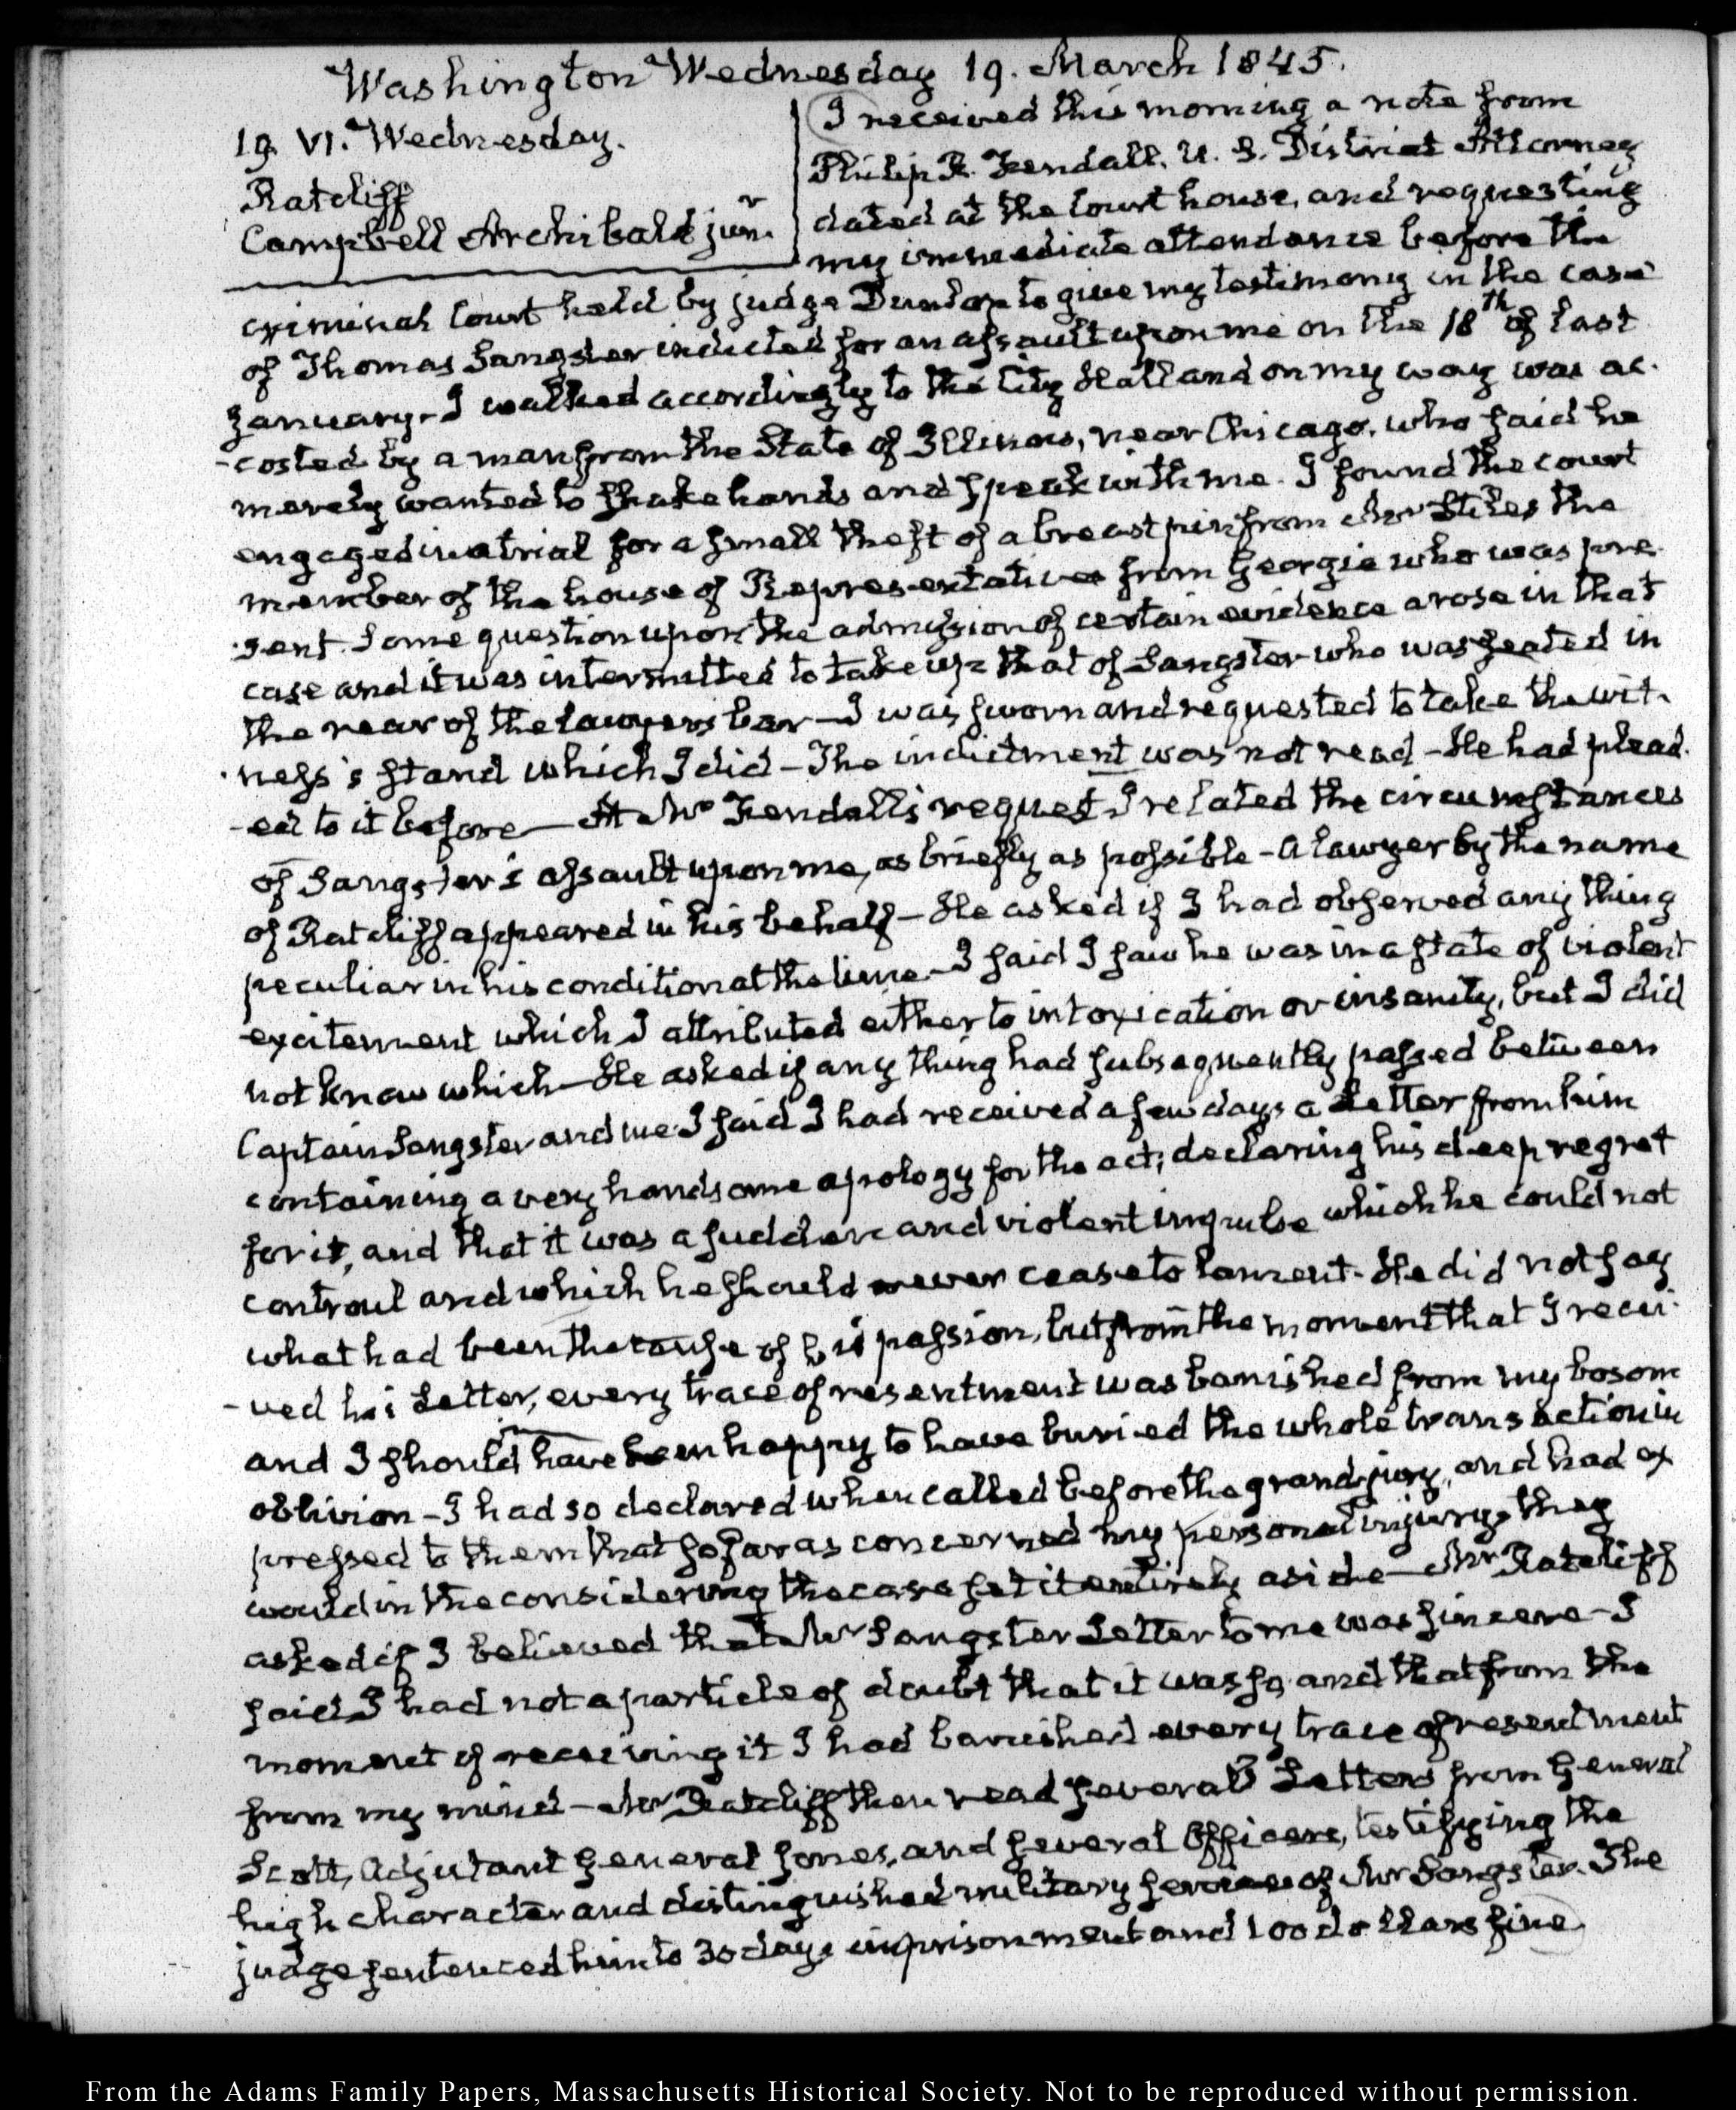 Washington Wednesday 19. March 1845.
19. VI. Wednesday.
Ratcliff
Campbell Archibald junr.
I received this morning a note from
Philip R. Fendall. U. S. District Attorney
dated at the Court house, and requesting
my immediate attendance before the
criminal Court held by judge Dunlop to give my testimony in the case
of Thomas Sangster indicted for an assault upon me on the 18th of last
January - I walked accordingly to the City Hall and on my way was ac-
-costed by a man from the State of Illinois, near Chicago, who said he
merely wanted to shake hands and speak with me. I found the court
engaged in a trial for a small theft of a breast pin from Mr Stiles the
member of the house of Representatives from Georgia who was pre-
-sent. Some question upon the admission of certain evidence arose in that
case and it was intermitted to take up that of Sangster who was seated in
the rear of the lawyers bar - I was sworn and requested to take the wit-
-ness's stand which I did - The indictment was not read - He had plead-
-ed to it before - At Mr Fendall's request I related the circumstances
of Sangster's assault upon me, as briefly as possible - A lawyer by the name
of Ratcliff appeared in his behalf - He asked if I had observed any thing
peculiar in his condition at the time - I said I saw he was in a state of violent
excitement which I attributed either to intoxication or insanity, but I did
not know which - He asked if any thing had subsequently passed between
Captain Sangster and me I said I had received a few days a Letter from him
containing a very handsome apology for the act; declaring his deep regret
for it, and that it was a sudden and violent impulse which he could not
controul and which he should never cease to lament. He did not say
what had been the cause of his passion, but from the moment that I recei-
-ved his Letter, every trace of resentment was banished from my bosom
and I should have been happy to have buried the whole transaction in
oblivion - I had so declared when called before the grand-jury, and had ex
pressed to them that so far as concerned my personal injury, they
would in the considering the case set it entirely aside - Mr Ratcliff
asked if I believed that Mr Sangster Letter to me was sincere - I
said I had not a particle of doubt that it was so and that from the
moment of receiving it I had banished every trace of resentment
from my mind - Mr Ratcliff then read several Letters from General
Scott, Adjutant General Jones, and several Officers, testifying the
high character and distinguished military services of Mr Sangster. The
judge sentenced him to 30 days imprisonment and 100 dollars fine
From the Adams Family Papers, Massachusetts Historical Society. Not to be reproduced without permission.